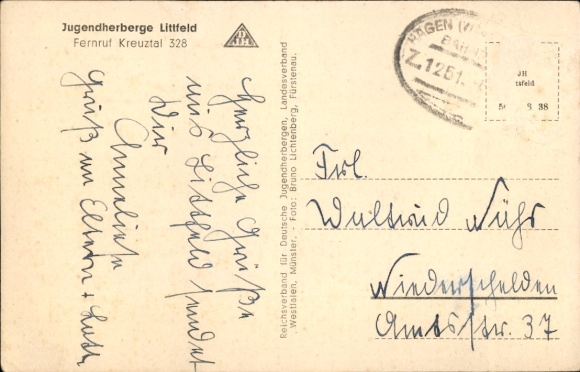 Jugendherberge Littfeld
Fernruf Kreuztal 328
DJH
Herzliche Grüße
aus Littfeld sendet
Dir
Anneliese
Gruß an Eltern +
Reichsverband für Deutsche Jugendherbergen, Landesverband
Westfalen, Münster. - Foto: Bruno Lichtenberg, Fürstenau.
HAGEN
BAHN
Z.1251
JH
tsfeld
8 38
Frl.
Waltrud
Niederschelden
Amtsstr. 37